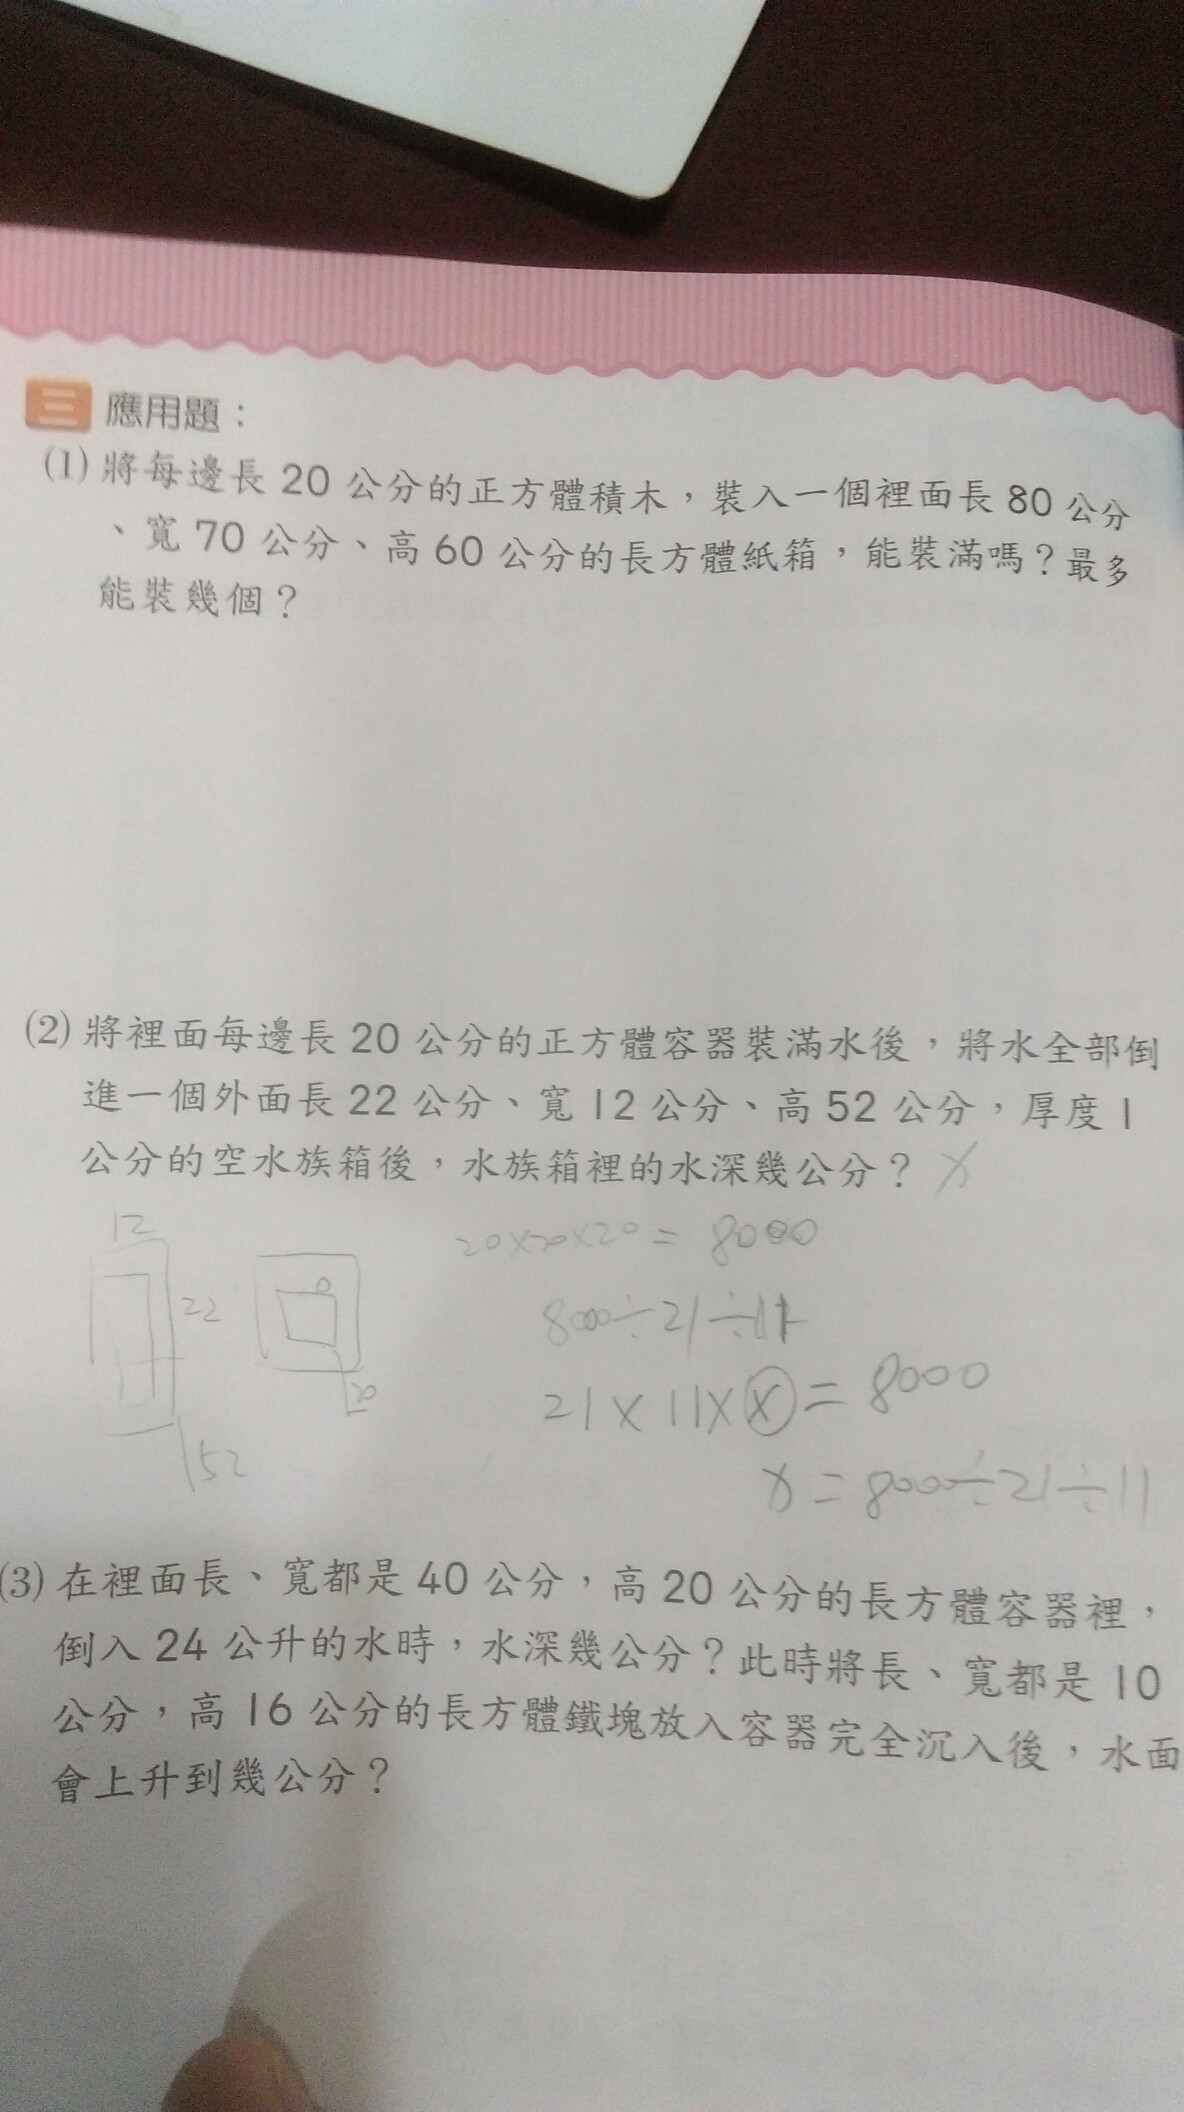 三 應用題：
(1) 將每邊長 20 公分的正方體積木，裝入一個裡面長 80 公分
、寬 70 公分、高 60 公分的長方體紙箱，能裝滿嗎？最多
能裝幾個？
(2) 將裡面每邊長 20 公分的正方體容器裝滿水後，將水全部倒
進一個外面長 22 公分、寬 12 公分、高 52 公分，厚度 1
公分的空水族箱後，水族箱裡的水深幾公分？ x
12
22
52
20
20×20×20 = 8000
8000÷21÷11
21 × 11 × x = 8000
x = 8000÷21÷11
(3) 在裡面長、寬都是 40 公分，高 20 公分的長方體容器裡，
倒入 24 公升的水時，水深幾公分？此時將長、寬都是 10
公分，高 16 公分的長方體鐵塊放入容器完全沉入後，水面
會上升到幾公分？